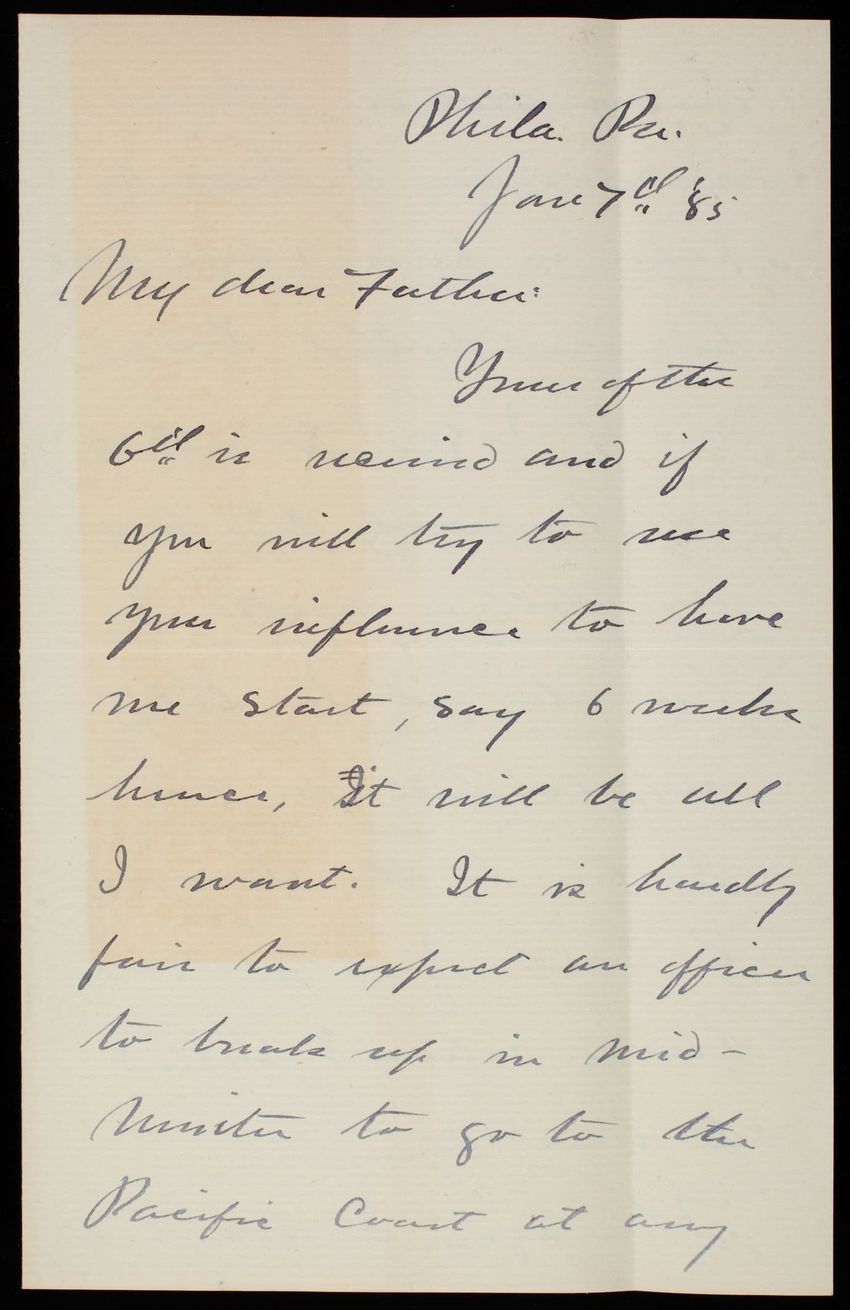 Phila. Pa.
Jan 7th '85
My dear Father:
Yours of the
6th is received and if
you will try to use
your influence to have
me start, say 6 weeks
hence, it will be all
I want. It is hardly
fair to expect an officer
to break up in mid-
winter to go to the
Pacific Coast at any